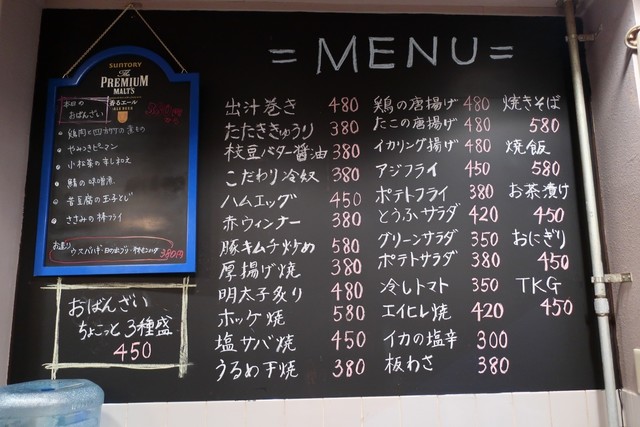 = MENU =
SUNTORY
The
PREMIUM
MALT'S
香るエール
本日の
おばんざい
やみつきピーマン
鯖の味噌煮
ささみの棒フライ
おばんざい
ちょこっと3種盛
450
出汁巻き 480
たたききゅうり 380
枝豆バター醤油 380
こだわり冷奴 380
ハムエッグ 450
赤ウィンナー 380
豚キムチ炒め 580
厚揚げ焼 380
明太子炙り 480
ホッケ焼 580
塩サバ焼 450
うるめ干焼 380
鶏の唐揚げ 480
たこの唐揚げ 480
イカリング揚げ 480
アジフライ 450
ポテトフライ 380
とうふサラダ 420
グリーンサラダ 350
ポテトサラダ 380
冷しトマト 350
エイヒレ焼 420
イカの塩辛 300
板わさ 380
焼きそば
580
焼飯
580
お茶漬け
450
おにぎり
450
TKG
450